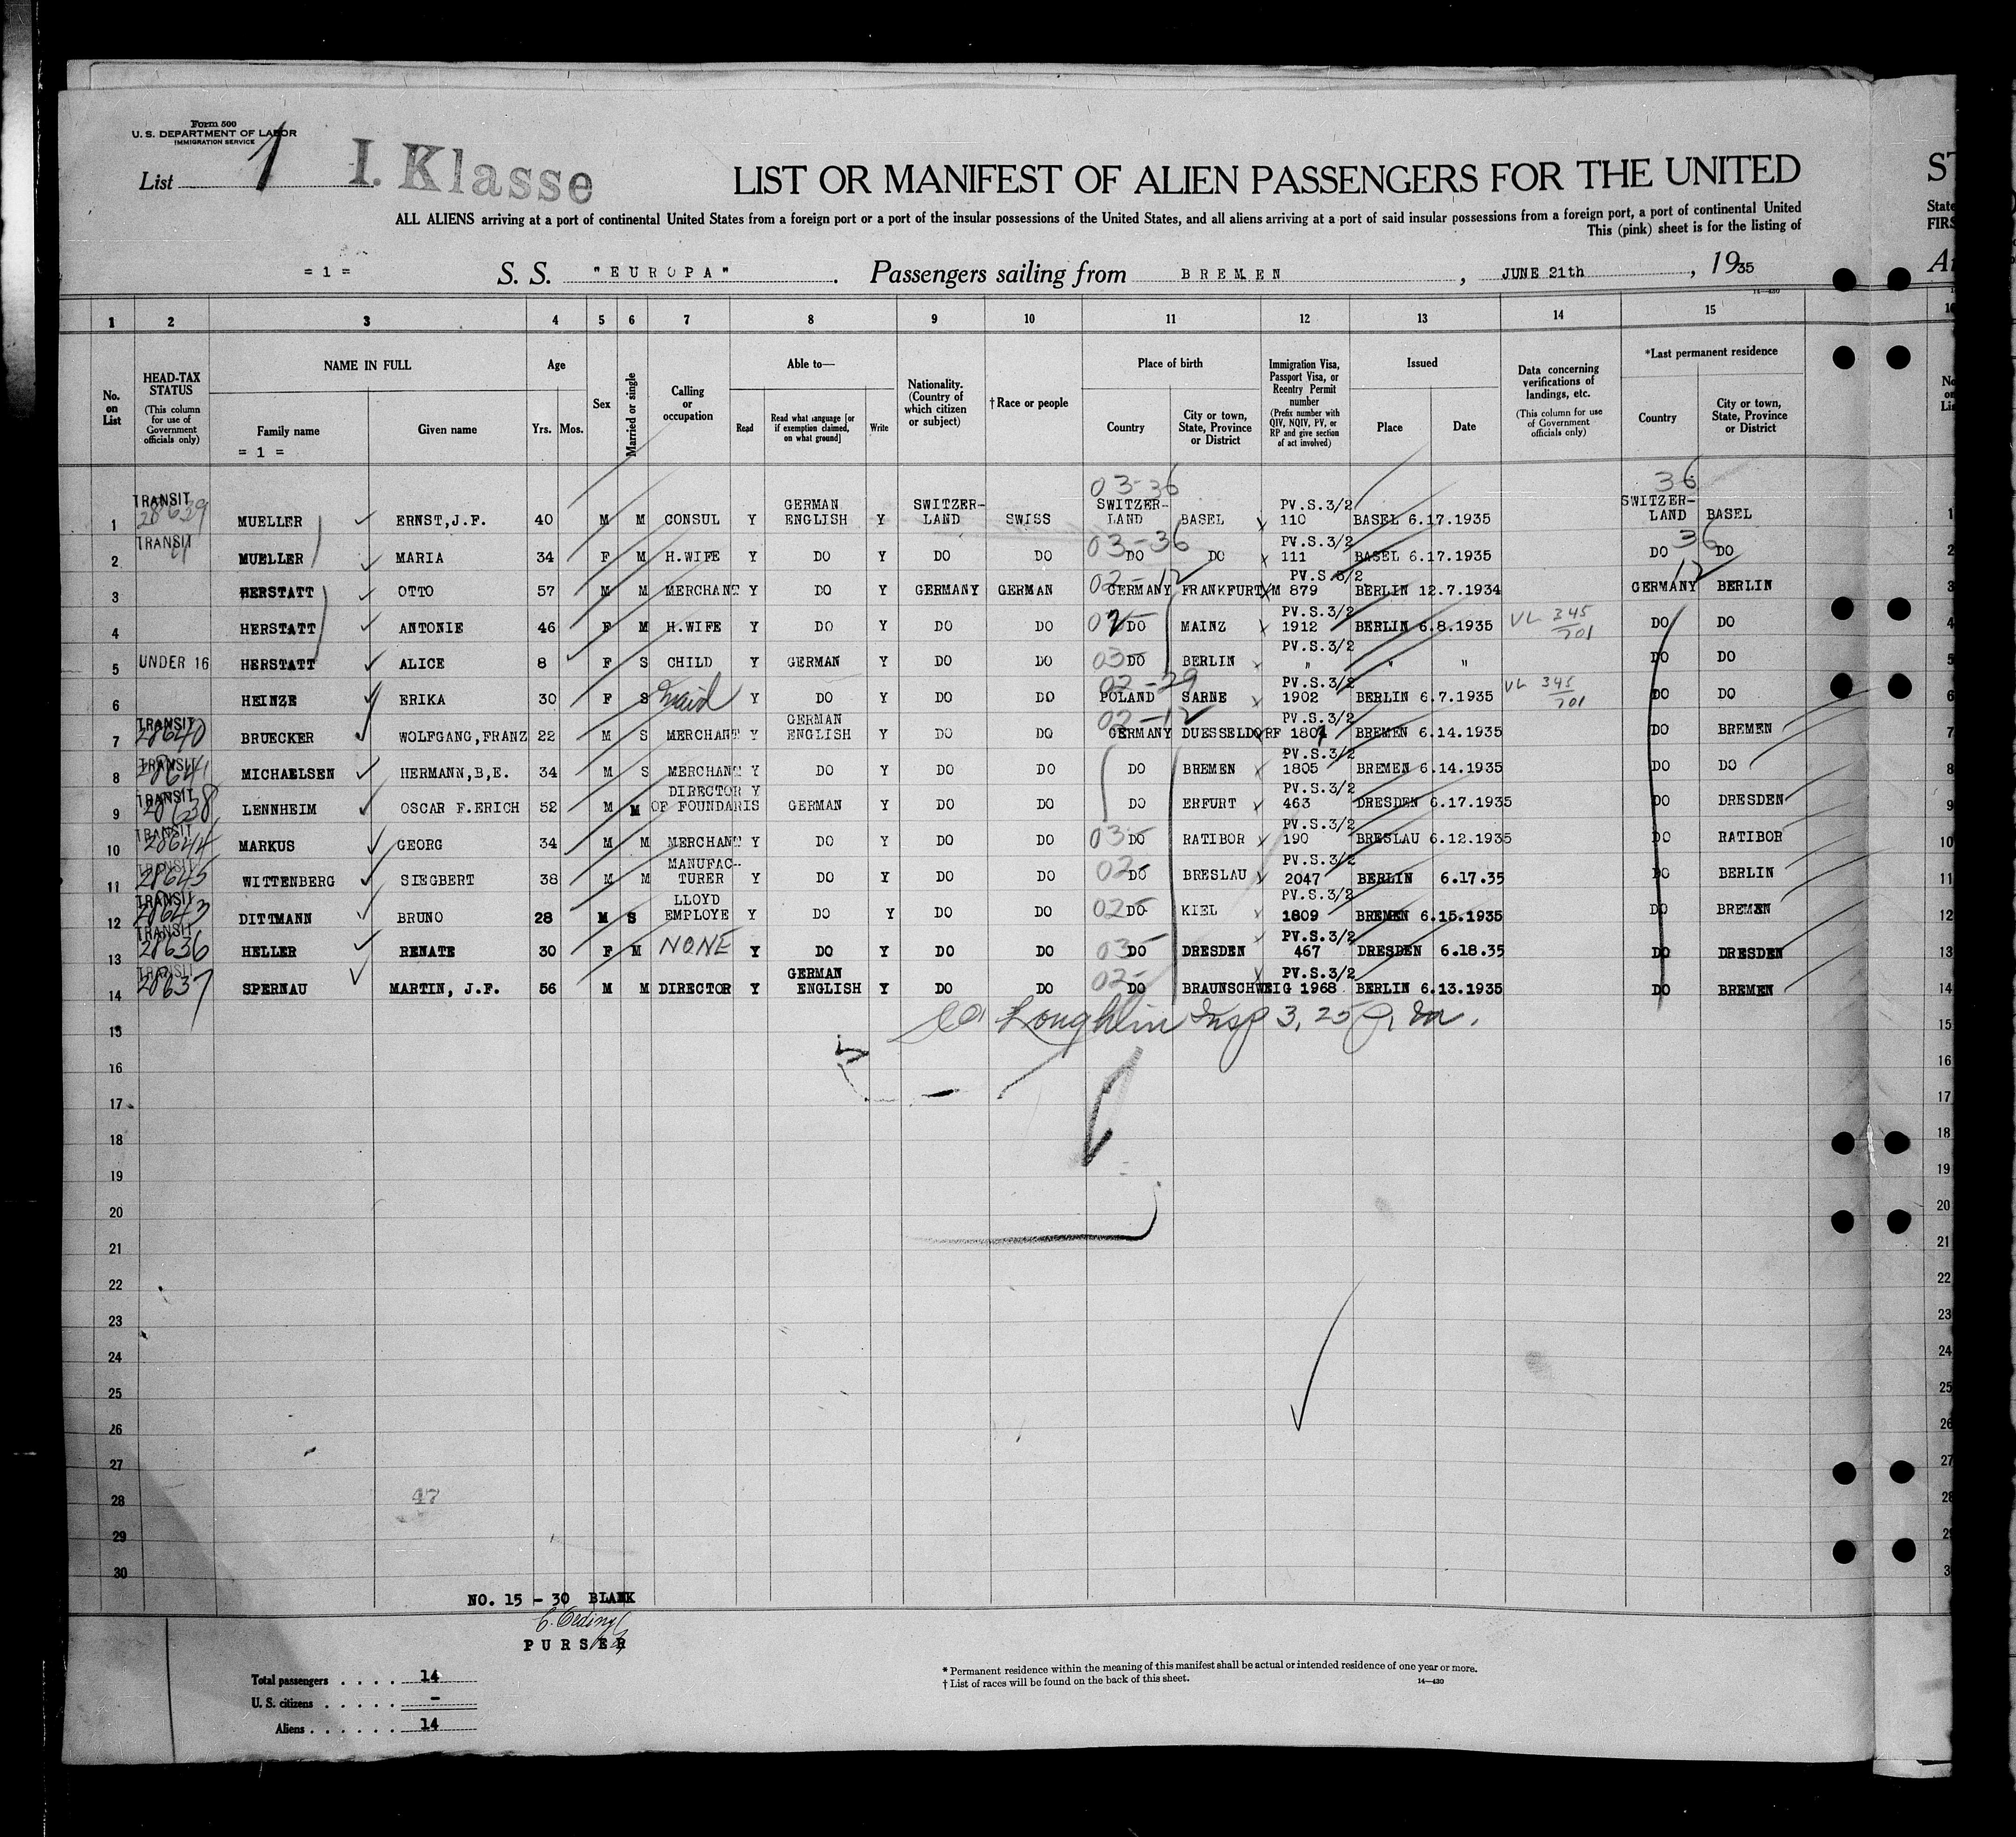 Form 500
U. S. DEPARTMENT OF LABOR
IMMIGRATION SERVICE
List 1 I. Klasse
LIST OR MANIFEST OF ALIEN PASSENGERS FOR THE UNITED ST
ALL ALIENS arriving at a port of continental United States from a foreign port or a port of the insular possessions of the United States, and all aliens arriving at a port of said insular possessions from a foreign port, a port of continental United State
This (pink) sheet is for the listing of FIRS
= 1 = S. S. "EUROPA". Passengers sailing from BREMEN, JUNE 21th, 1935
1 2 3 4 5 6 7 8 9 10 11 12 13 14 15
No. on List
HEAD-TAX STATUS (This column for use of Government officials only)
NAME IN FULL
Family name
= 1 =
Given name
Age
Yrs. Mos.
Sex
Married or single
Calling or occupation
Able to—
Read
Read what language [or if exemption claimed, on what ground]
Write
Nationality. (Country of which citizen or subject)
†Race or people
Place of birth
Country
City or town, State, Province or District
Immigration Visa, Passport Visa, or Reentry Permit number (Prefix number with QIV, NQIV, PV, or RP and give section of act involved)
Issued
Place
Date
Data concerning verifications of landings, etc. (This column for use of Government officials only)
*Last permanent residence
Country
City or town, State, Province or District
1 TRANSIT 28639 MUELLER ERNST,J.F. 40 M M CONSUL Y GERMAN ENGLISH Y SWITZER-LAND SWISS 03-36 SWITZER-LAND BASEL PV.S.3/2 110 BASEL 6.17.1935 36 SWITZER-LAND BASEL 1
2 TRANSIT MUELLER MARIA 34 F M H.WIFE Y DO Y DO DO 03-36 DO DO PV.S.3/2 111 BASEL 6.17.1935 DO 36 DO 2
3 HERSTATT OTTO 57 M M MERCHANT Y DO Y GERMANY GERMAN 02-12 GERMANY FRANKFURT/M PV.S.3/2 879 BERLIN 12.7.1934 12 GERMANY BERLIN 3
4 HERSTATT ANTONIE 46 F M H.WIFE Y DO Y DO DO 02 DO MAINZ PV.S.3/2 1912 BERLIN 6.8.1935 VL 345/701 DO DO 4
5 UNDER 16 HERSTATT ALICE 8 F S CHILD Y GERMAN Y DO DO 03- DO BERLIN PV.S.3/2 " " " DO DO 5
6 HEINZE ERIKA 30 F S maid Y DO Y DO DO 02-29 POLAND SARNE PV.S.3/2 1902 BERLIN 6.7.1935 VL 345/701 DO DO 6
7 TRANSIT 28640 BRUECKER WOLFGANG,FRANZ 22 M S MERCHANT Y GERMAN ENGLISH Y DO DO 02-12 GERMANY DUESSELDORF PV.S.3/2 1804 BREMEN 6.14.1935 DO BREMEN 7
8 TRANSIT 28641 MICHAELSEN HERMANN,B,E. 34 M S MERCHANT Y DO Y DO DO DO BREMEN PV.S.3/2 1805 BREMEN 6.14.1935 DO DO 8
9 TRANSIT 28638 LENNHEIM OSCAR F.ERICH 52 M M DIRECTOR OF FOUNDARIS Y GERMAN Y DO DO DO ERFURT PV.S.3/2 463 DRESDEN 6.17.1935 DO DRESDEN 9
10 TRANSIT 28644 MARKUS GEORG 34 M M MERCHANT Y DO Y DO DO 03- DO RATIBOR PV.S.3/2 190 BRESLAU 6.12.1935 DO RATIBOR 10
11 TRANSIT 28645 WITTENBERG SIEGBERT 38 M M MANUFAC-TURER Y DO Y DO DO 02- DO BRESLAU PV.S.3/2 2047 BERLIN 6.17.35 DO BERLIN 11
12 TRANSIT 28643 DITTMANN BRUNO 28 M S LLOYD EMPLOYE Y DO Y DO DO 02- DO KIEL PV.S.3/2 1809 BREMEN 6.15.1935 DO BREMEN 12
13 TRANSIT 28636 HELLER RENATE 30 F M NONE Y DO Y DO DO 03- DO DRESDEN PV.S.3/2 467 DRESDEN 6.18.35 DO DRESDEN 13
14 TRANSIT 28637 SPERNAU MARTIN, J.F. 56 M M DIRECTOR Y GERMAN ENGLISH Y DO DO 02- DO BRAUNSCHWEIG PV.S.3/2 1968 BERLIN 6.13.1935 DO BREMEN 14
15 Loughlin Insp 3,25 P.m. 15
16 16
17 17
18 18
19 19
20 20
21 21
22 22
23 23
24 24
25 25
26 26
27 27
28 47 28
29
30
NO. 15 - 30 BLANK
PURSER
Total passengers . . . . 14
U. S. citizens . . . . . -
Aliens . . . . . . 14
* Permanent residence within the meaning of this manifest shall be actual or intended residence of one year or more.
† List of races will be found on the back of this sheet.
14—430